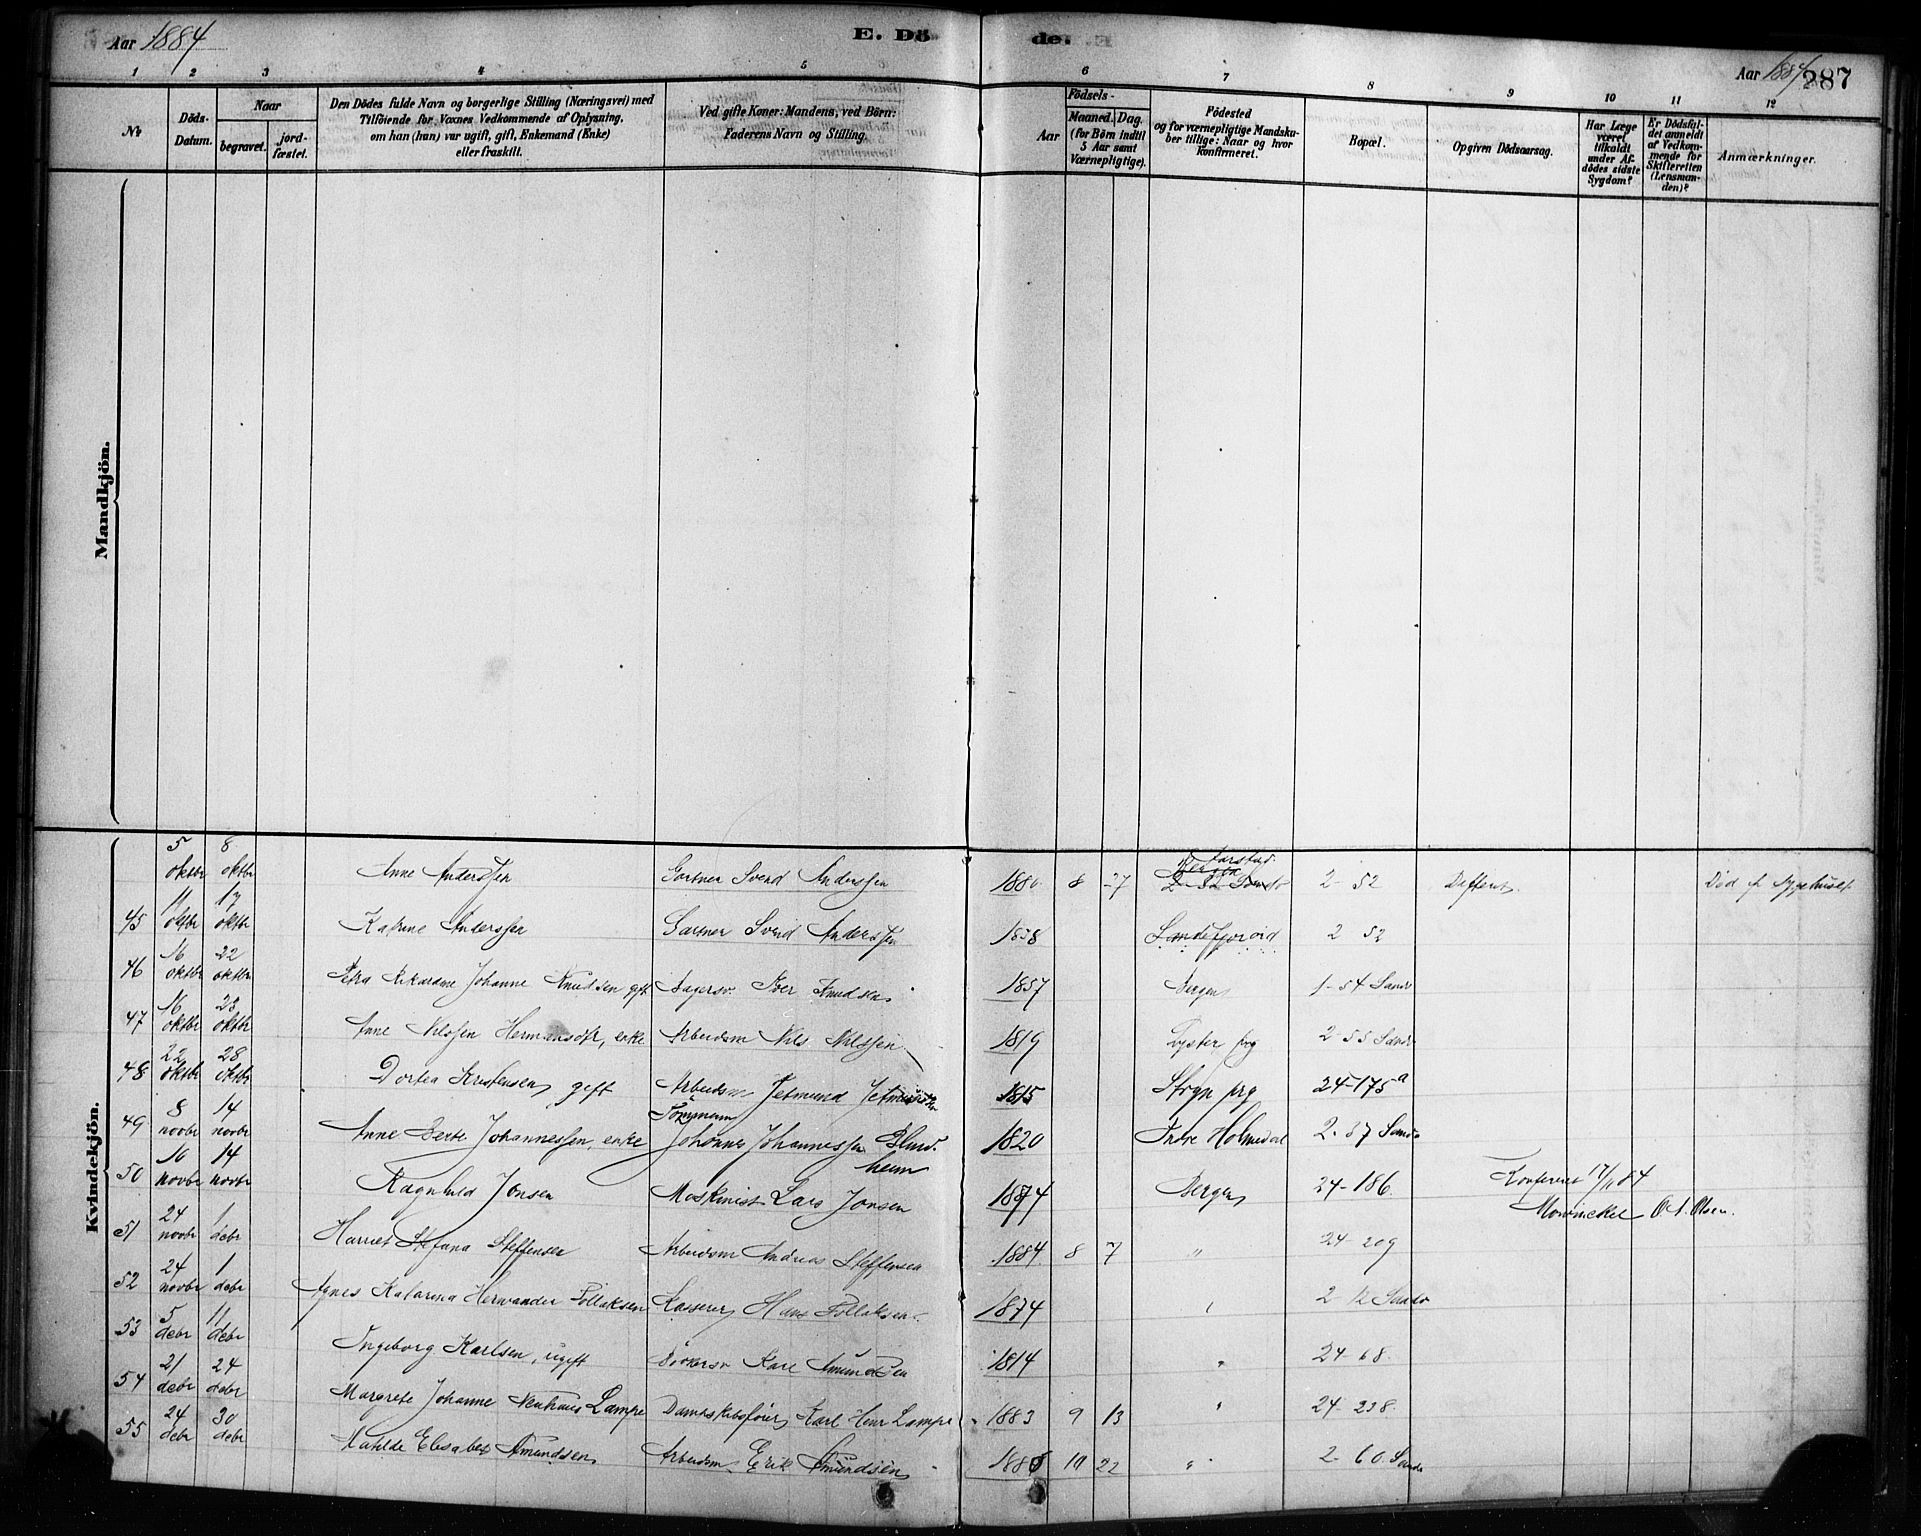 Aar 1884
E. Dö
de.
Aar 1884
287
1 2 3 4 5 6 7 8 9 10 11 12
No
Döds-
Datum.
Naar
begravet.
jord-
fæstet.
Den Dödes fulde Navn og borgerlige Stilling (Næringsvei) med
Tilföiende for Voxnes Vedkommende af Oplysning.
om han (hun) var ugift, gift, Enkemand (Enke)
eller fraskilt.
Ved gifte Koner: Mandens, ved Börn:
Faderens Navn og Stilling.
Födsels-
Aar
Maaned. Dag.
(for Börn indtil
5 Aar samt
Værnepligtige).
Födested
og for værnepligtige Mandsku-
ber tillige: Naar og hvor
konfirmeret.
Bopæl.
Opgiven Dödsaarsag.
Har Læge
været
tilkaldt
under Af-
dödes sidste
Sygdom?
Er Dödsfal-
det anmeldt
af Vedkom-
mende for
Skifteretten
(Lensman-
den)?
Anmærkninger.
Mandkjön.
Kvindekjön.
5 oktbr 8 oktbr Anne Anderssen Gartner Svend Anderssen 1880 8 27 Bergen 2-52 Differit. Död p. Sygehuset
45 11 oktbr 17 oktbr Katrine Anderssen Gartner Svend Anderssen 1858 Sandefjord 2 52
46 16 oktbr 22 oktbr Petra Rikardine Johanne Knudsen gift Iver Knudsen 1857 Bergen 1-54 Sandv
47 16 oktbr 23 oktbr Anne Nilssen Hermansdtr, enke Arbeidsm Nils Nilssen 1819 Lyster prg 2-55 Sandv
48 22 oktbr 28 oktbr Dortea Kristensen, gift Arbeidsm Jetmund 1815 Stryn prg 24-175a
49 8 novbr 14 novbr Anne Berte Johannessen, enke Tömmerm Johannes Johannessen Blind-
heim 1820 Indre Holmedal 2-87 Sandv
50 10 novbr 14 novbr Ragnhild Jonsen Maskinist Lars Jonsen 1874 Bergen 24-186
Konfereret 17/11 84
Mowinckel O. A. Olsen.
51 24 novbr 1 debr Harriet Stefana Steffensen Arbeidsm Andreas Steffensen 1884 8 7 " 24-209
52 24 novbr 1 debr Agnes Katarina Herwander Follaksen Kasserer Hans Follaksen 1874 " 2-12 Sandv
53 5 debr 11 debr Ingeborg Karlsen, ugift Bödkersv Karl Amundsen 1814 " 24-68
54 21 debr 24 debr Margrete Johanne Neuhaus Lampe Damskibsförer Karl Henr Lampe 1883 9 13 " 24-238
55 24 debr 30 debr Matilde Elisabet Amundsen Arbeidsm Erik Amundsen 1880 10 22 " 2-60 Sandv